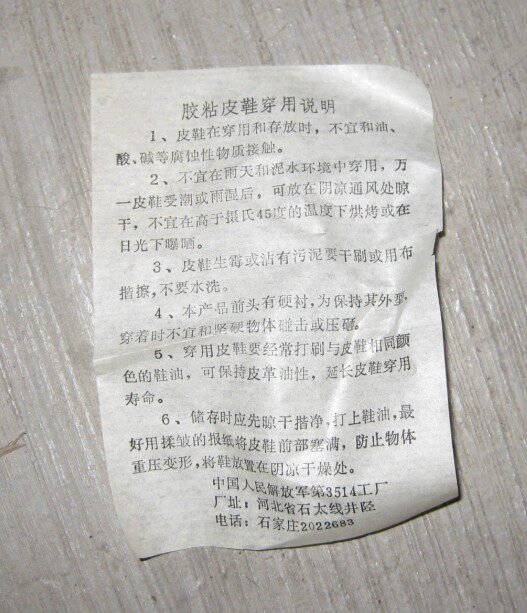 胶粘皮鞋穿用说明
1、皮鞋在穿用和存放时，不宜和油、
酸、碱等腐蚀性物质接触。
2、不宜在雨天和泥水环境中穿用，万
一皮鞋受潮或雨湿后，可放在阴凉通风处晾
干，不宜在高于摄氏45度的温度下烘烤或在
日光下曝晒。
3、皮鞋生霉或沾有污泥要干刷或用布
揩擦，不要水洗。
4、本产品前头有硬衬，为保持其外型，
穿着时不宜和坚硬物体碰击或压砸。
5、穿用皮鞋要经常打刷与皮鞋相同颜
色的鞋油，可保持皮革油性，延长皮鞋穿用
寿命。
6、储存时应先晾干揩净，打上鞋油，最
好用揉皱的报纸将皮鞋前部塞满，防止物体
重压变形，将鞋放置在阴凉干燥处。
中国人民解放军第3514工厂
厂址：河北省石太线井陉
电话：石家庄2022683